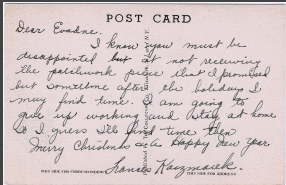 POST CARD
Dear Evadne.
I know you must be
disappointed but at not receiving
the patchwork piece that I promised
but sometime after the holidays I
may find time. I am going to
give up working and stay at home
so I guess I'll find time then
Merry Christmas & a Happy New Year
Frances Kaczmarek.
THIS SIDE FOR CORRESPONDENCE
THIS SIDE FOR ADDRESS